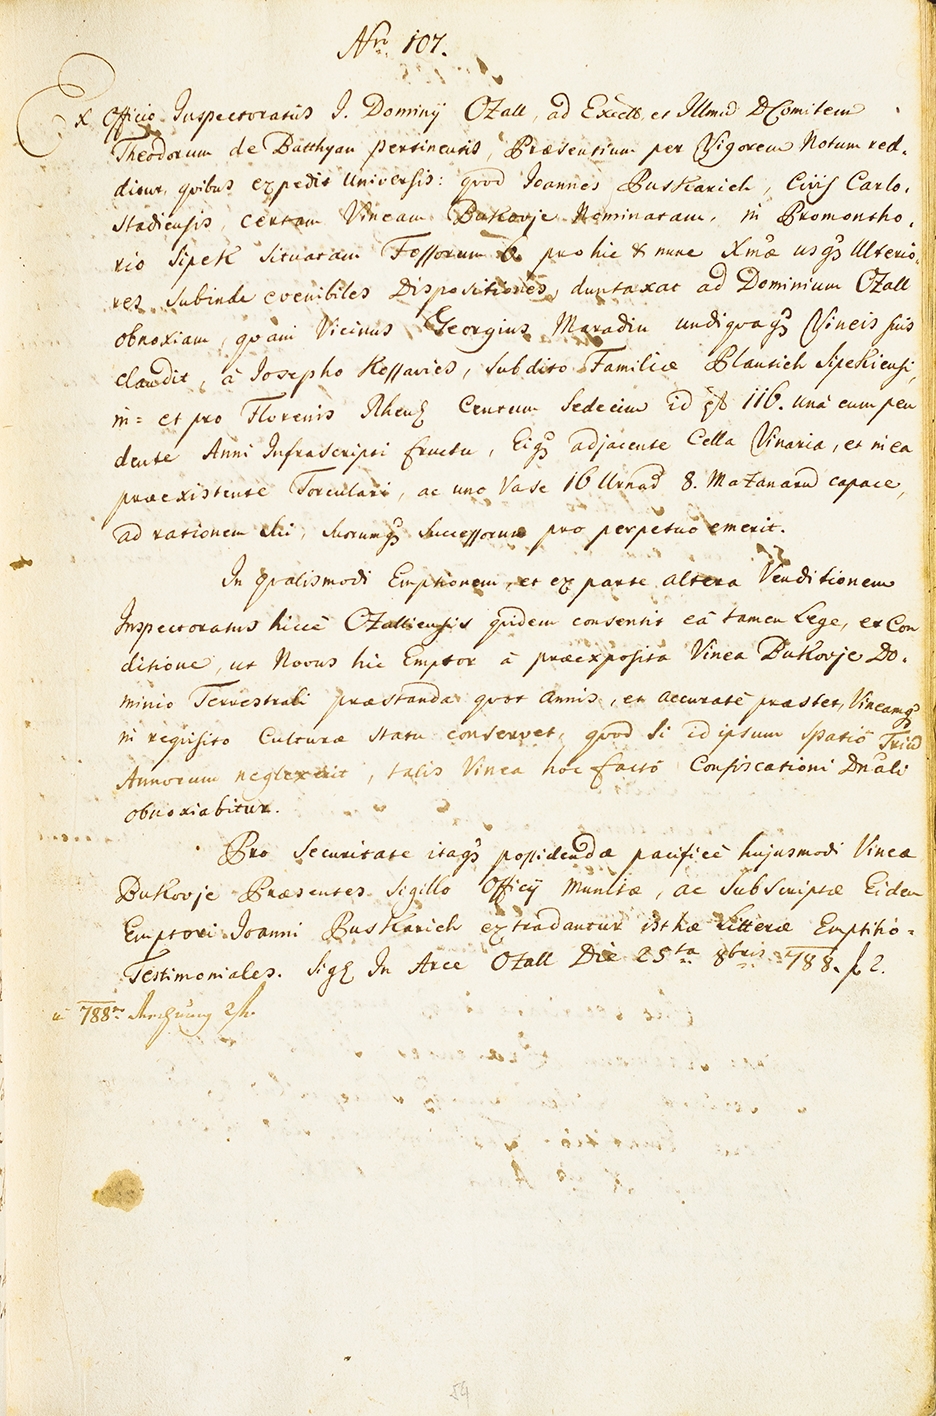 Nro. 107.
Ex Officio Inspectoratus I. Dominÿ Ozall, ad Excell. et Illmū D Comitem
Theodorum de Batthyan pertinentis, Præsentium per Vigorem Notum red-
ditur, quibus expedit Universis: quod Joannes Buskarich, Civis Carlo-
stadiensis, certam Vineam Bukovje Nominatam, in Promontho-
rio Sipek situatam Fossorum 6 pro hic & nunc Xmæ usq3 Ulterio-
res subinde evenibiles Dispositiones, duntaxat ad Dominium Ozall
obnoxiam, quam Vicinus Georgius Maradin undiquaq3 Vineis suis
claudit, à Josepho Kessavics, subdito Familiæ Blansich Sipekiensi,
in= et pro Florenis Rhen. Centum Sedecim id est 116. unà cum pen
dente Anni Infrascripti fructu, Eiq3 adjacente Cella Vinaria, et in ea
præexistente Torculari, ac uno Vase 16 Urnar 8. Mazanaru capace,
ad rationem sui, suorumq3 Successorum pro perpetuo emerit.
In qualismodi Emptionem, et ex parte altera Venditionem
Inspectoratus hicce Ozalliensis quidem consentit eâ tamen Lege, et Con
ditione, ut Novus hic Emptor à præexposita Vinea Bukovje Do-
minio Terrestrali præstanda quot annis, et accuratè præstet, Vineamq3
in requisito Culturæ statu conservet, quod si id ipsum spatiô Triū
Annorum neglexerit, talis Vinea hoc factô Confiscationi Dnali
obnoxiabitur.
Pro Securitate itaq3 possidendæ pacificè hujusmodi Vineæ
Bukovje Præsentes sigillo Officÿ munitæ, ac subscriptæ Eidem
Emptori Joanni Buskarich extradantur isthæ Litteræ Emptitio-
Testimoniales. Sig. In Arce Ozall Die 25ta 8bris 788. f 2.
788
54